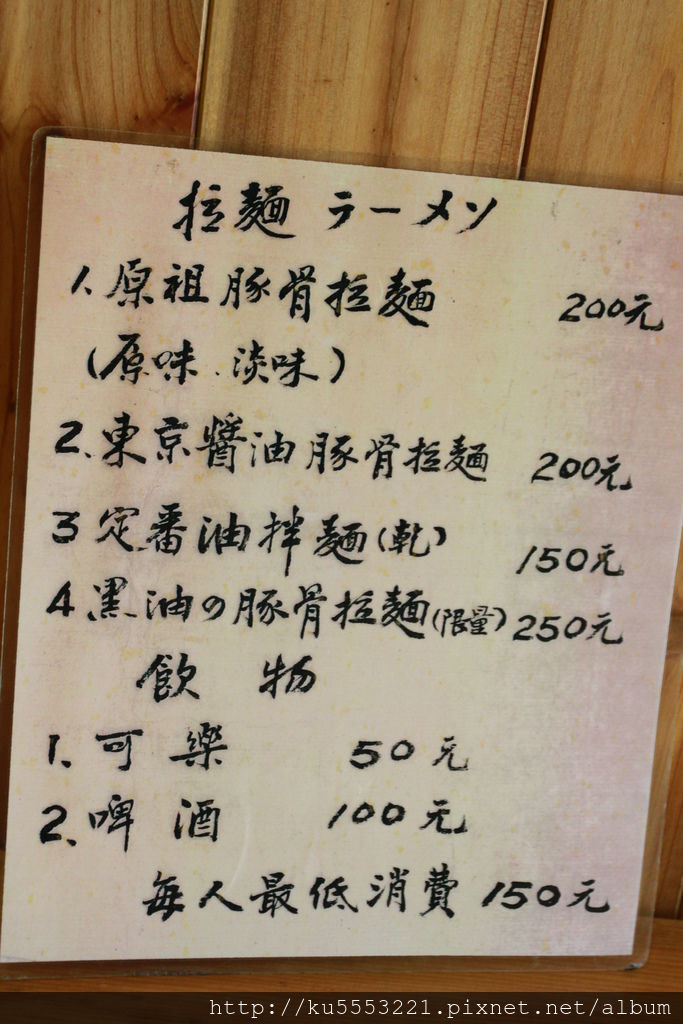 拉麵 ラーメン
1.原祖豚骨拉麵 200元
(原味.淡味)
2.東京醬油豚骨拉麵 200元
3定番油拌麵(乾) 150元
4黑油の豚骨拉麵(限量)250元
飲 物
1.可樂 50元
2.啤酒 100元
每人最低消費150元
http://ku5553221.pixnet.net/album